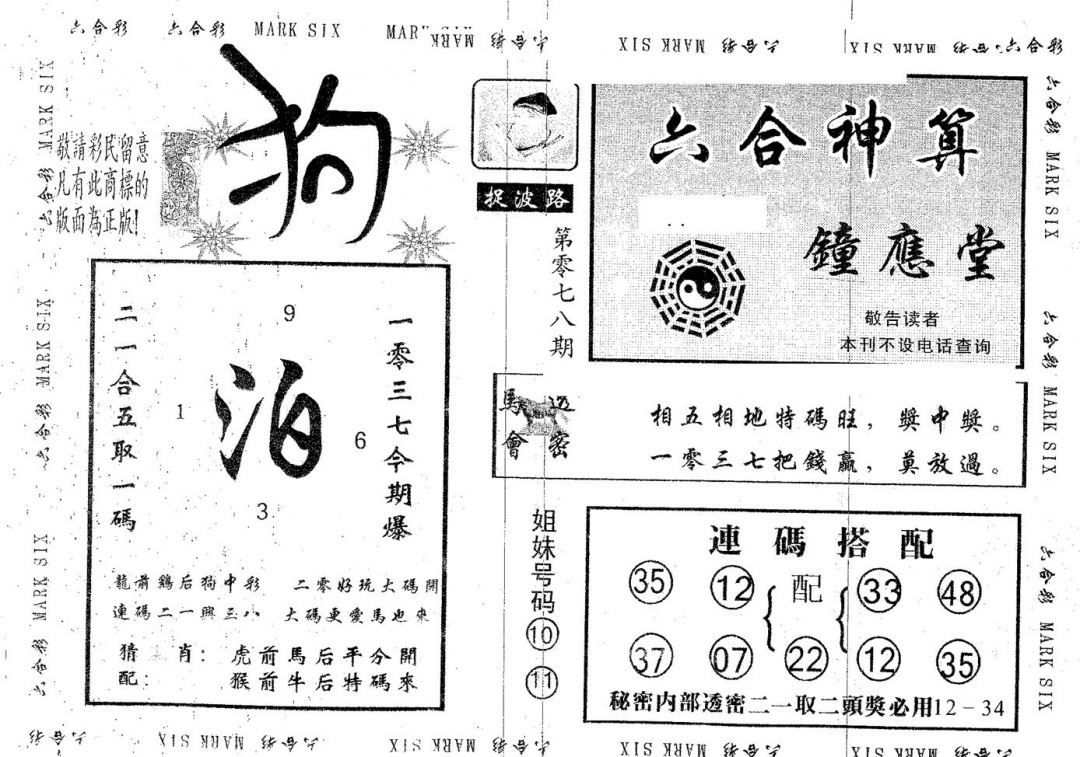 六合彩 六合彩 MARK SIX MAR MARK 六合彩 MARK SIX 六合彩 MARK SIX 六合彩 六合彩
六合彩 MARK SIX 六合彩 MARK SIX 六合彩 MARK SIX
敬請彩民留意
凡有此商標的
版面為正版!
狗
二一合五取一碼
9
1
泊
6
3
一零三七今期爆
龍前鷄后狗中彩 二零好玩大碼開
連碼二一興三八 大碼更愛馬也來
猜 肖: 虎前馬后平分開
配: 猴前牛后特碼來
捉波路
第零七八期
六合神算
鐘應堂
敬告读者
本刊不设电话查询
馬會
透密
相五相地特碼旺,獎中獎。
一零三七把錢贏,莫放過。
姐妹号码
10
11
連碼搭配
35 12 配 33 48
37 07 22 12 35
秘密内部透密二一取二頭獎必用12-34
六合彩 MARK SIX 六合彩 MARK SIX 六合彩 MARK SIX
六合彩 MARK SIX 六合彩 MARK SIX 六合彩 MARK SIX 六合彩 MARK SIX 六合彩